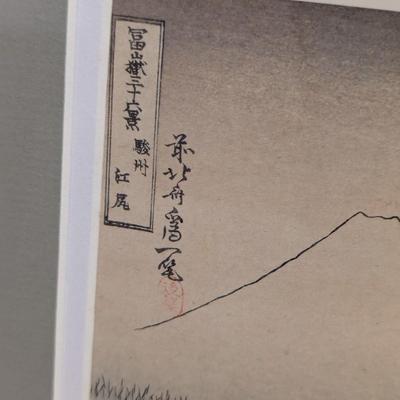 冨嶽三十六景 駿州 江尻
前北斎爲一筆